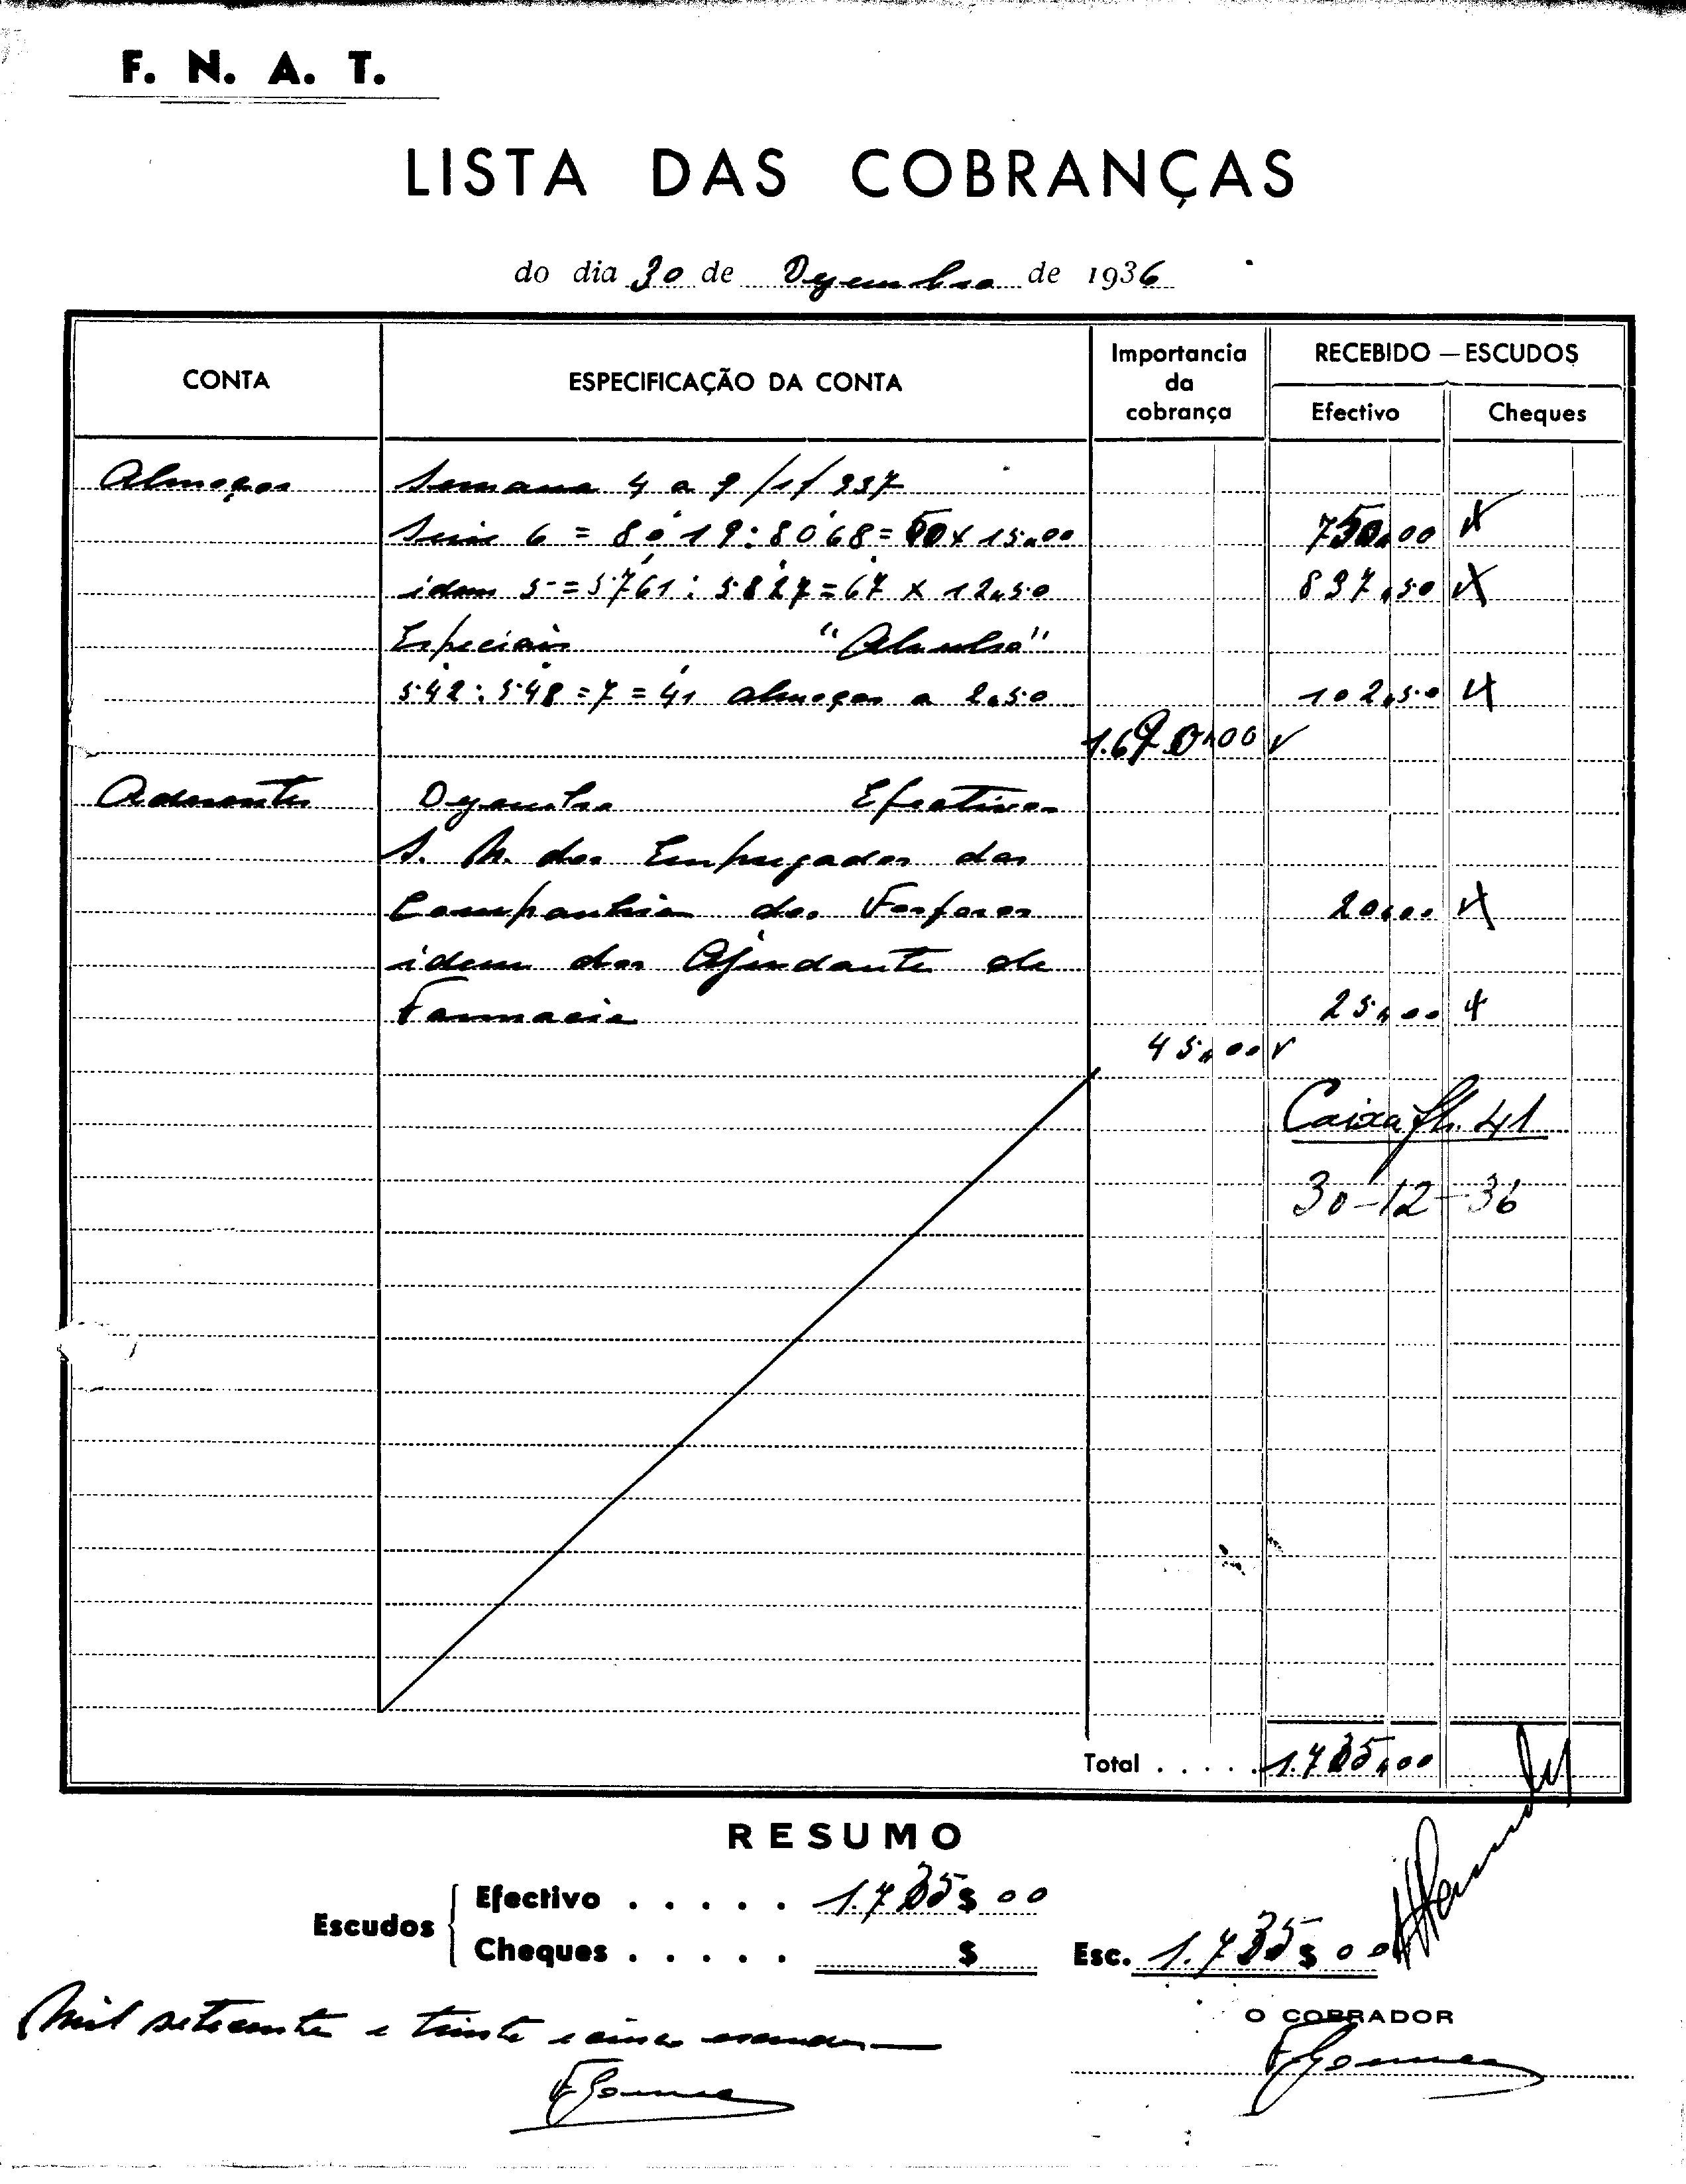 F. N. A. T.
LISTA DAS COBRANÇAS
do dia 30 de Dezembro de 1936
CONTA
ESPECIFICAÇÃO DA CONTA
Importancia da cobrança
RECEBIDO — ESCUDOS
Efectivo
Cheques
Almoços Semana 4 a 9/1/937
Serie 6 = 8019:8068=50x15,00 750,00
idem 5=5761:5827=67 x 12,50 837,50
Especiais "Abulso"
542:548=7=41 almoços a 2,50 102,50
1.690,00
Aderentes Dezembro Efectivos
S. N. dos Empregados das
Companhia dos Fosforos 20,00
idem dos Ajudante de
Farmacia 25,00
45,00
Caixa fl. 41
30-12-36
Total . . . . . 1.735,00
RESUMO
Escudos
Efectivo . . . . . 1.735$00
Cheques . . . . . $
Esc. 1.735$00
Mil setecentos e trinta e cinco escudos
O COBRADOR
F Gomes
F Gomes